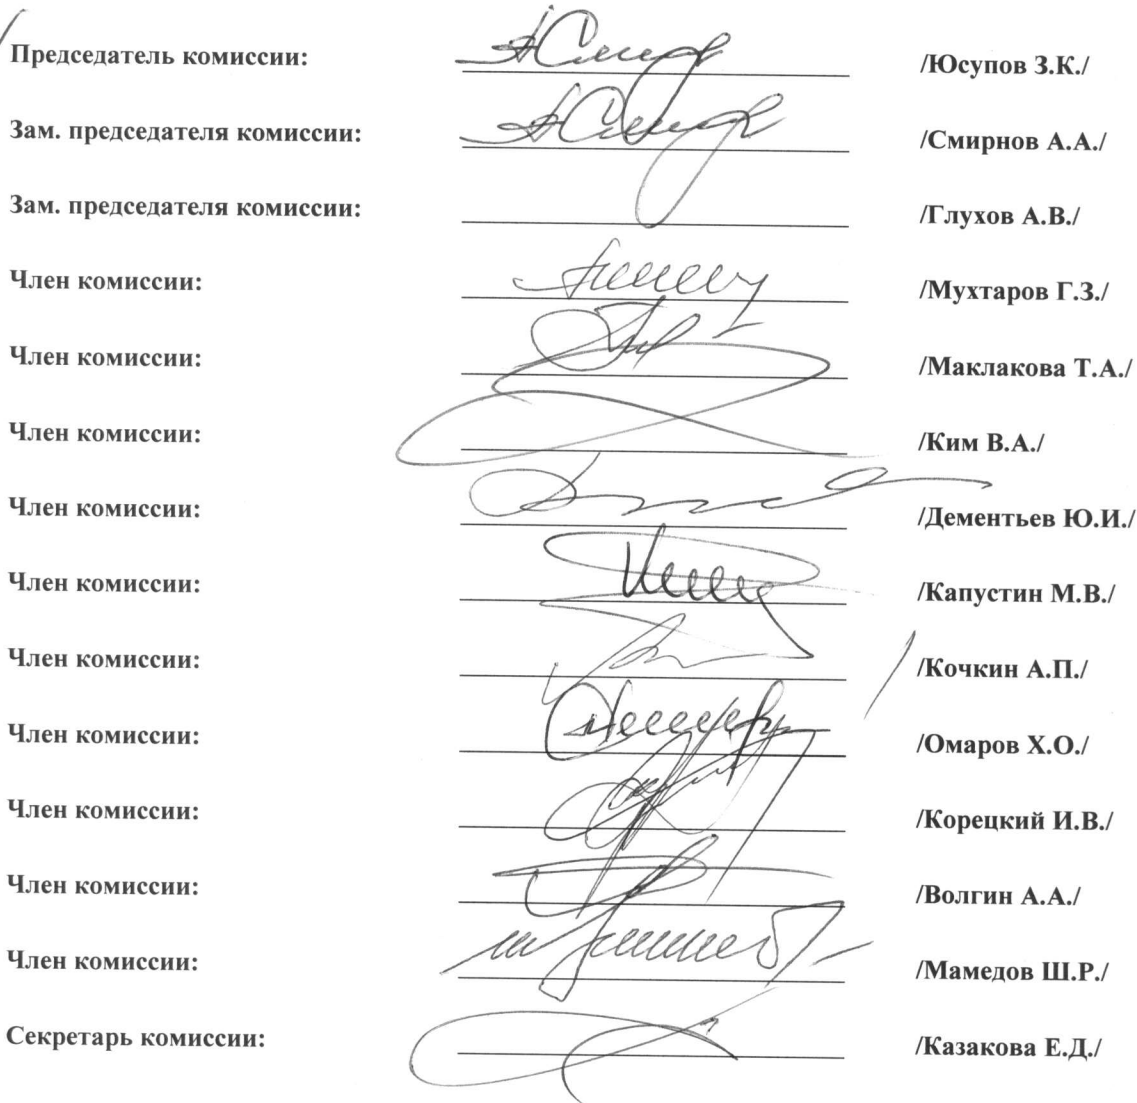 Председатель комиссии: /Юсупов З.К./
Зам. председателя комиссии: /Смирнов А.А./
Зам. председателя комиссии: /Глухов А.В./
Член комиссии: /Мухтаров Г.З./
Член комиссии: /Маклакова Т.А./
Член комиссии: /Ким В.А./
Член комиссии: /Дементьев Ю.И./
Член комиссии: /Капустин М.В./
Член комиссии: /Кочкин А.П./
Член комиссии: /Омаров Х.О./
Член комиссии: /Корецкий И.В./
Член комиссии: /Волгин А.А./
Член комиссии: /Мамедов Ш.Р./
Секретарь комиссии: /Казакова Е.Д./